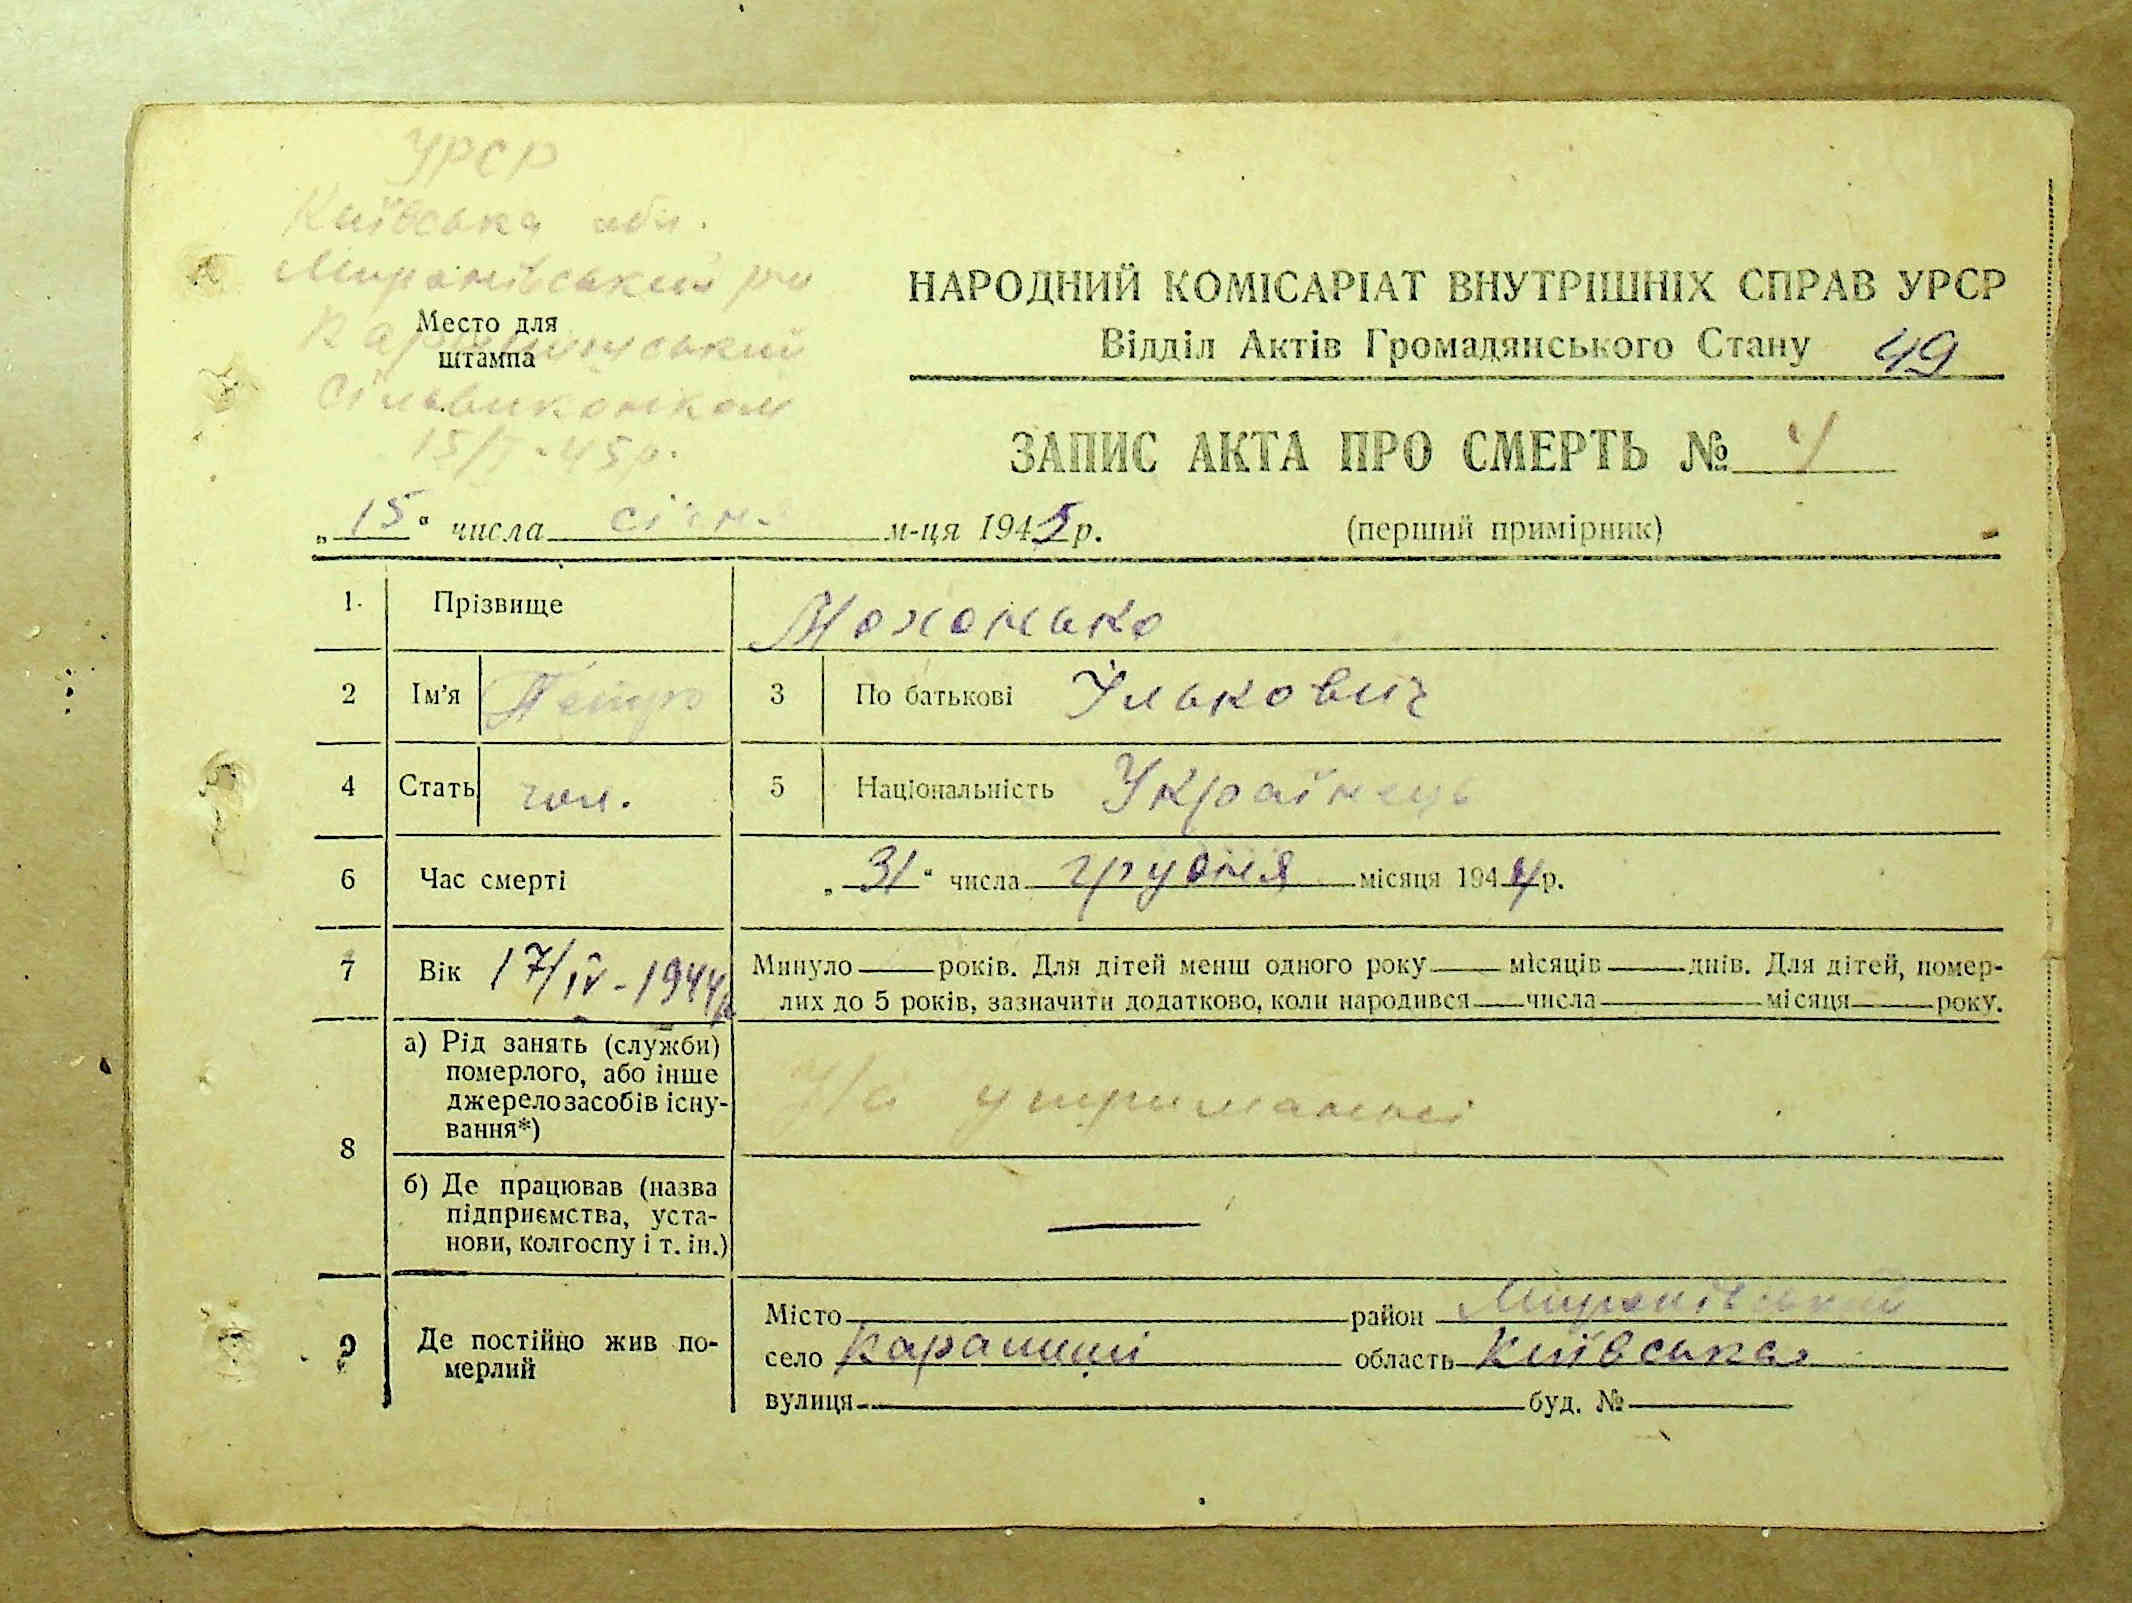 УРСР
Київська обл.
Миронівський р-н
Место для
штампа
Карапишський
Сільвиконком
15/I-45р.
НАРОДНИЙ КОМІСАРІАТ ВНУТРІШНІХ СПРАВ УРСР
Відділ Актів Громадянського Стану 49
ЗАПИС АКТА ПРО СМЕРТЬ № 4
„15“ числа січня м-ця 1945 р. (перший примірник)
1. Прізвище Мохонько
2 Ім'я Петро 3 По батькові Ількович
4 Стать чол. 5 Національність Українець
6 Час смерті „31“ числа грудня місяця 1944 р.
7 Вік 17/IV-1944р Минуло років. Для дітей менш одного року місяців днів. Для дітей, помер-
лих до 5 років, зазначити додатково, коли народився числа місяця року.
8 а) Рід занять (служби)
померлого, або інше
джерело засобів існу-
вання*)
На утриманні
б) Де працював (назва
підприємства, уста-
нови, колгоспу і т. ін.)
—
9 Де постійно жив по-
мерлий
Місто район Миронівський
село Карапиші область Київська
вулиця буд. №